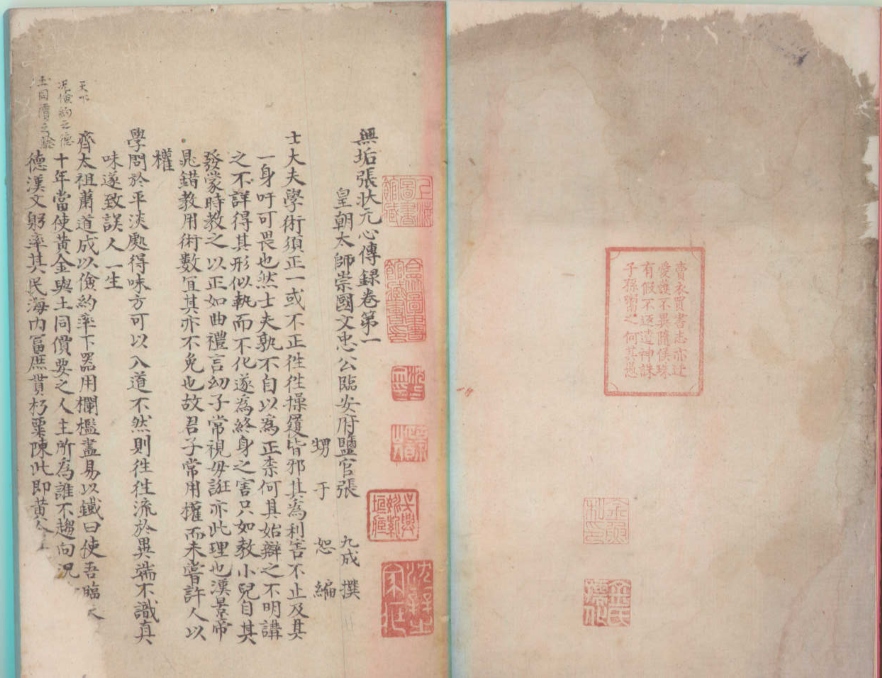 賣衣買書志亦迂
愛護不異隋侯珠
有假不返遭神誅
子孫鬻之何其愚
無垢張狀元心傳録卷第一
皇朝太師崇國文忠公臨安府鹽官張 九成 撰
甥于 恕 編
士大夫學術須正一或不正徃徃操履皆邪其為利害不止及其
一身吁可畏也然士夫孰不自以為正柰何其始辯之不明講
之不詳得其形似執而不化遂為終身之害只如教小兒自其
發蒙時教之以正如曲禮言幼子常視毋誑亦此理也漢景帝
鼂錯教用術數宜其亦不免也故君子常用權而未嘗許人以
權
學問於平淡處得味方可以入道不然則徃徃流於異端不識真
味遂致誤人一生
齊太祖蕭道成以儉約率下器用欄檻盖易以鐵曰使吾臨天
十年當使黃金與土同價要之人主所為誰不趨向況
德漢文躬率其民海内富庶貫朽粟陳此即黃金